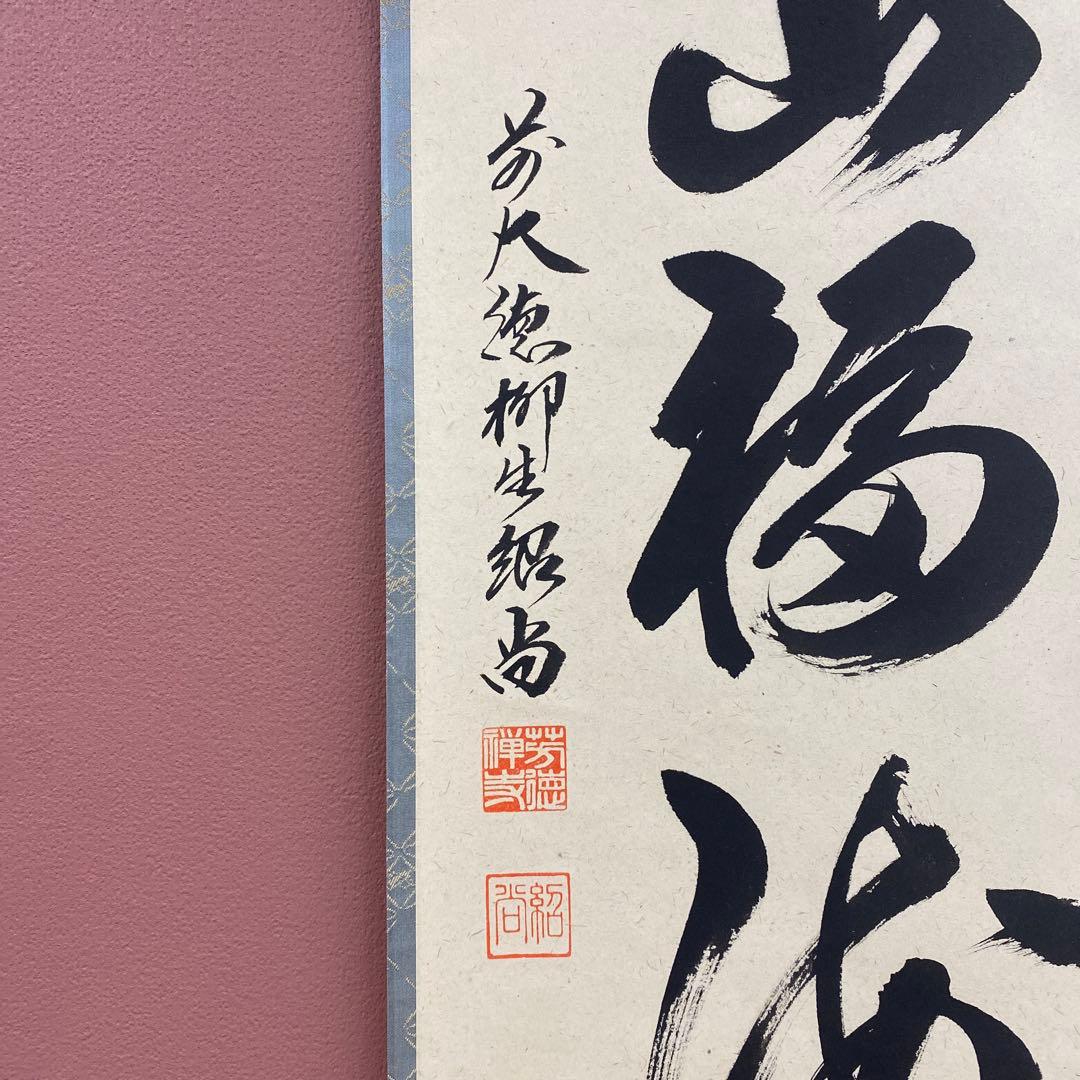 山福海
前大徳柳生紹尚
芳徳禅寺
紹尚